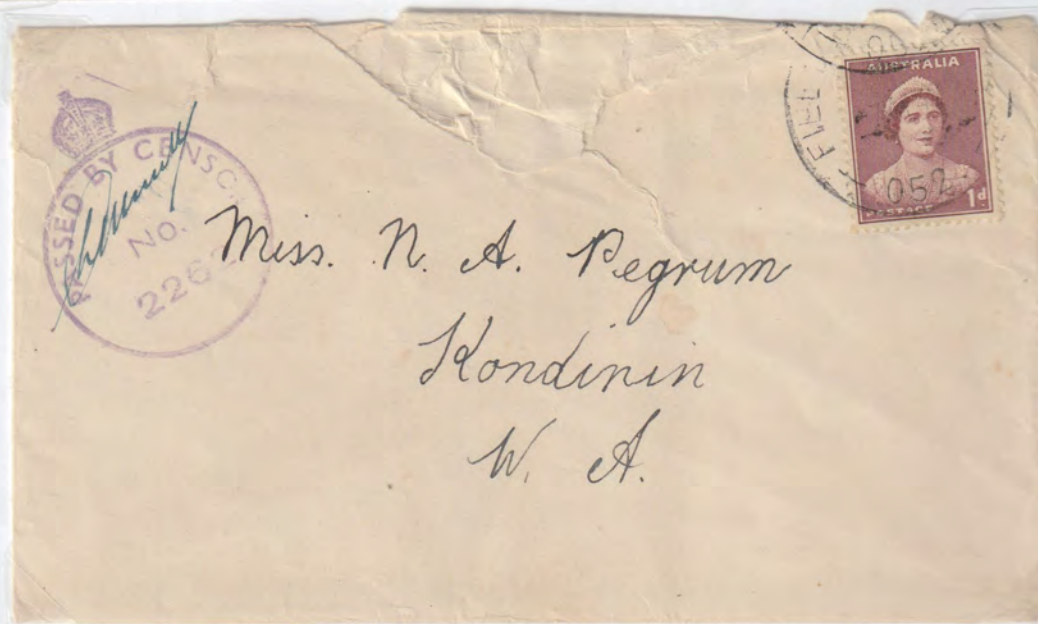 PASSED BY CENSOR
No.
226
AUSTRALIA
052
POSTAGE 1d
Miss. N. A. Pegrum
Kondinin
W. A.